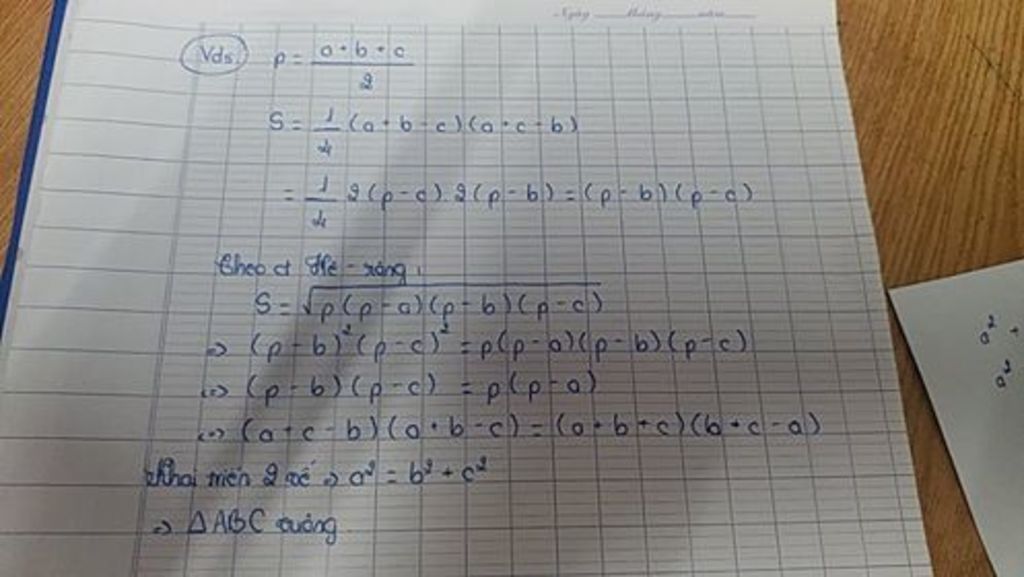 Ngày ___ tháng ___ năm ___
Vd5 p = \frac{a+b+c}{2}
S = \frac{1}{4} (a+b-c)(a+c-b)
= \frac{1}{4} 2(p-c) 2(p-b) = (p-b)(p-c)
Theo ct Hê-rông,
S = \sqrt{p(p-a)(p-b)(p-c)}
=> (p-b)²(p-c)² = p(p-a)(p-b)(p-c)
<=> (p-b)(p-c) = p(p-a)
<=> (a+c-b)(a+b-c) = (a+b+c)(b+c-a)
Khai triển 2 vế => a² = b² + c²
=> ΔABC vuông.
a² +
a²